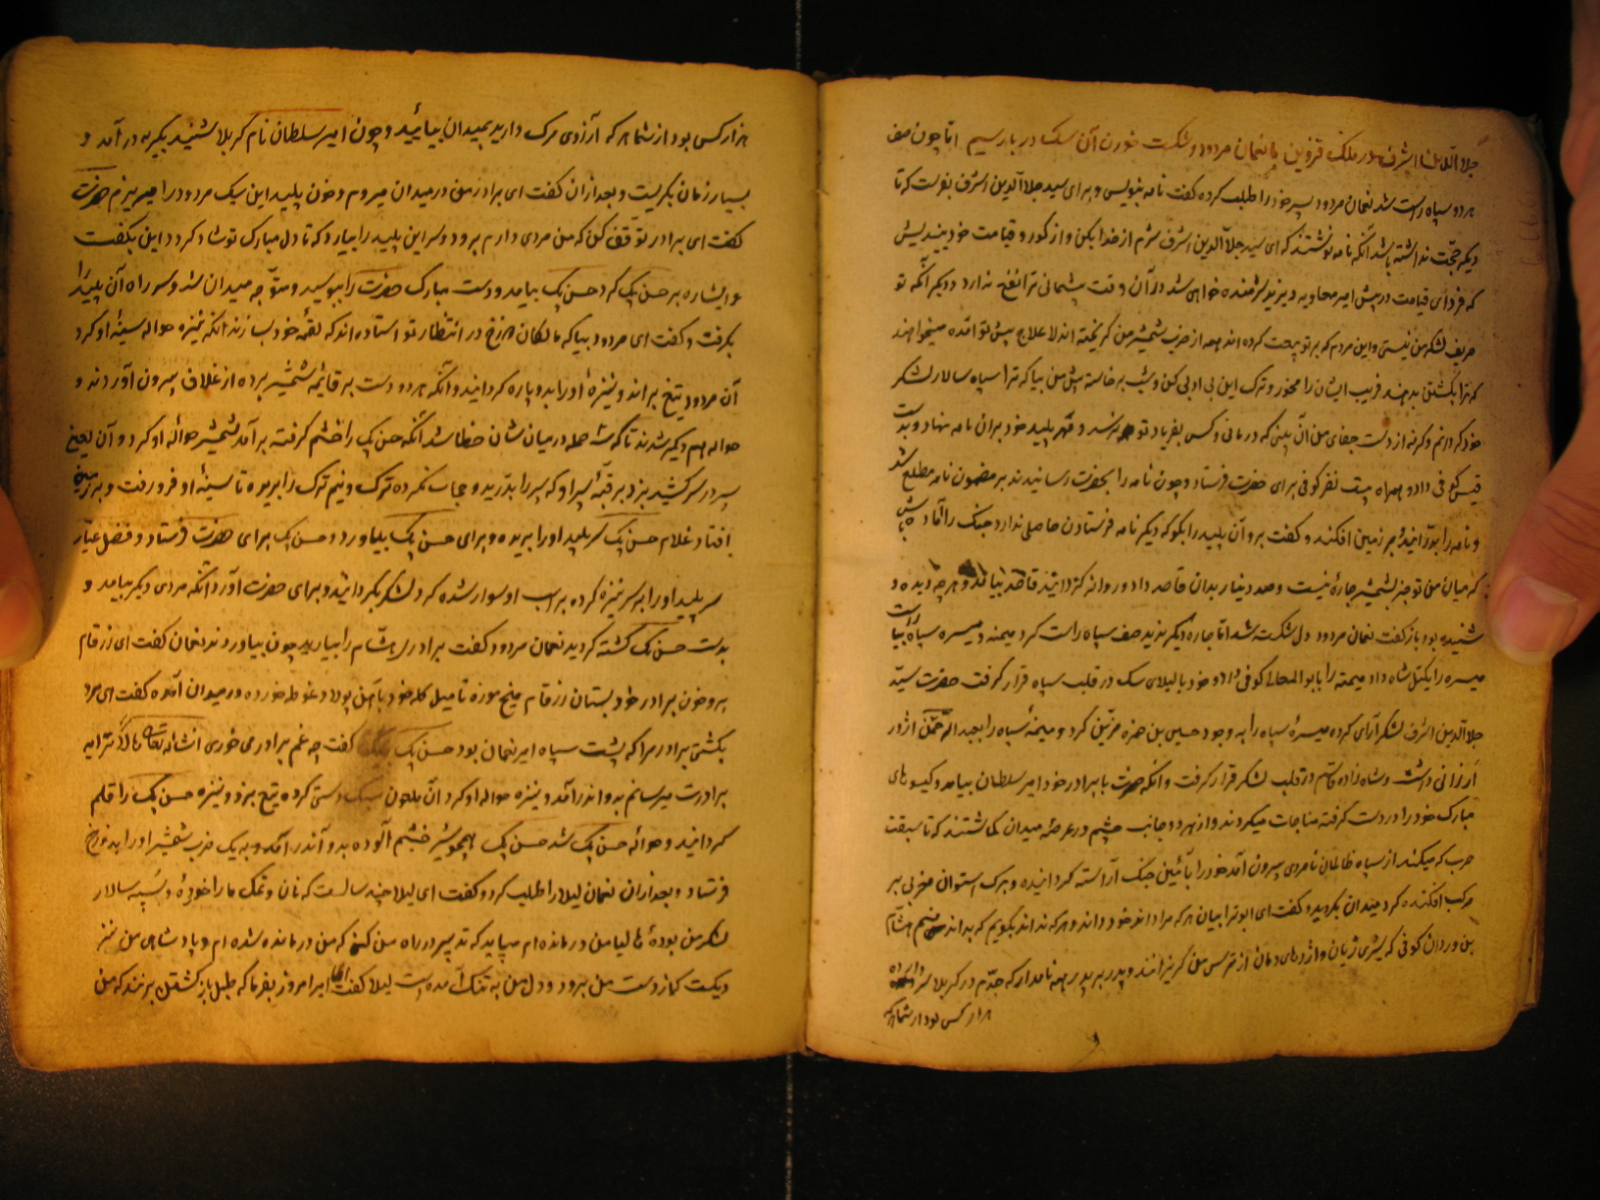 جلال الدین اشرف در ملک قزوین با نعمان مردود و شکست خوردن آن سک در بار سیم اما چون صف
هر دو سپاه راست شد نعمان مردود پسر خود را طلب کرده گفت نامه بنویسی و برای سید جلال الدین اشرف بفرست که تا
دیگر حجت نداشته باشد آنگه نامه نوشتند که ای سید جلال الدین اشرف شرم از خدا بکن و از گور و قیامت خود بیندیش
که فردای قیامت در پیش امیر معاویه و یزید شرمنده خواهی شد و از آن وقت پشمانی ترا نفع ندارد و دیگر آنکه تو
حریف لشکر من نیستی و این مردم که بر تو بیعت کرده اند همه از ضرب شمشیر من کریخته اند لا علاج پیش تو آمده میخواهند
که ترا بکشتن بدهند فریب ایشان را مخور و ترک این بی ادبی کن و شب برخاسته پیش من بیا که ترا سپاه سالار لشکر
خود کردانم و کرنه از دست جفای من آن بینی که در مانی و کسی بفریاد تو نرسد و مهر پلید خود بر آن نامه نهاد و بدست
قیس کوفی داد و همراه بیست نفر کوفی برای حضرت فرستاد و چون نامه را بحضرت رسانیدند بر مضمون نامه مطلع شد
و نامه را بدرانید و بر زمین افکند و گفت برو آن پلید را بگو که دیگر نامه فرستادن حاصلی ندارد جنک را آماده باش
که میان من و تو جز شمشیر چاره نیست و صد دینار بدان قاصد داد و روانه کردانید قاصد بیامد و هر چه دیده و
شنیده بود باز گفت نعمان مردود دل شکست شد اما چاره دیگر ندید صف سپاه راست کرد میمنه و میسره سپاه بیاراست
میسره را بکتل شاه داد میمنه را بابو المعالی کوفی داد و خود با لیلای سک در قلب سپاه قرار کرفت حضرت سید
جلال الدین اشرف لشکر آرای کرده میسرهٔ سپاه را به وجود حسین بن حمزه مزین کرد و میمنهٔ سپاه را بعبد الرحمن اژدر
ارزانی داشت و شاه زاده قاسم در قلب لشکر قرار کرفت و آنکه حضرت با برادر خود امیر سلطان بیامد و کیسوهای
مبارک خود را در دست کرفته مناجات میکردند و از هر دو جانب چشم در عرصه میدان کماشتند که تا سبقت
حرب که میکند از سپاه ظالمان نامردی بیرون آمد خود را بآئین جنک آراسته کردانیده و برک استوان مغربی بر
مرکب افکنده کرد میدان بکردید و گفت ای ابو ترابیان هر که مرا داند خود داند و هر که نداند بکویم که بداند منم هشام
بن وردان کوفی که شیری ژیان و اژدهای دمان از ترس من کریزانند و پدر بر پدر همه نامدار که جدم در کربلا سردار ده
هزار کس بود از شما هر که
هزار کس بود از شما هر که آرزوی مرک دارید بمیدان بیائید و چون امیر سلطان نام کربلا شنید بکریه در آمد و
بسیار زمان بکریست و بعد از آن گفت ای برادر من در میدان میروم و خون پلید این سک مردود را میریزم حضرت
گفت ای برادر توقف کن که من مردی دارم برود و سر این پلید را بیارد که تا دل مبارک تو شاد کردد این بگفت
و اشاره بر حسن بک کرد حسن بک بیامد و دست مبارک حضرت را ببوسید و متوجه میدان شد و سر راه آن پلید را
بکرفت و گفت ای مردود بیا که مالکان دوزخ در انتظار تو استاده اند که لقمه خود سازند آنکه نیزه حواله سینهٔ او کرد
آن مردود تیغ براند و نیزهٔ او را بدو پاره کردانید و آنکه هر دو دست به قائمه شمشیر برده از غلاف بیرون آوردند و
حواله هم دیکر شدند تا کوشه حمله در میان شان خطا شد آنکه حسن بک را خشم کرفته بر آمد شمشیر حواله او کرد و آن لعین
سپر در سر کشید بزد بر قبهٔ سپر او که سپر را بدرید و عجاب نکرده ترک و نیم ترک را بریده تا سینهٔ او فرو رفت و بر زمین
افتاد غلام حسن بک سر پلید او را بریده و برای حسن بک بیاورد و حسن بک برای حضرت فرستاد و فضل عیار
سر پلید او را بر سر نیزه کرده بر اسب او سوار شده کرد لشکر بکردانید و برای حضرت آورد آنکه مردی دیکر بیامد و
بدست حسن بک کشته کردید نعمان مردود گفت برادر هشام را بیارید چون بیاوردند نعمان گفت ای زرقام
برو خون برادر خود بستان زرقام میخ موزه تا میل کله خود باهن پولاد غوطه خورده در میدان آمده گفت ای مرد
بکشتی برادر مرا که پشت سپاه امیر نعمان بود حسن بک گفت چه غم برادر می خوری انشاء الله تعالی حالا ترا به
برادرت میرسانم بدو اندر آمد و نیزه حواله او کرد آن ملعون سبک دستی کرده تیغ بزد و نیزه حسن بک را قلم
کردانید و حواله حسن بک شد حسن بک همچو شیر خشم آلوده بدو آندر آمد و به یک ضرب شمشیر او را بدوزخ
فرستاد و بعد از آن نعمان لیلا را طلب کرد و گفت ای لیلا چند سالست که نان و نمک ما را خوردهٔ و سپه سالار
لشکر من بودهٔ حالیا من درمانده ام میباید که تدبیر در راه من کنی که من درمانده شده ام و پادشاهی من نیز
دیکست کز دست من برود و دل من به تنک آمده است لیلا گفت ایها امیر امروز بفرما که طبل باز کشتن بزنند که من